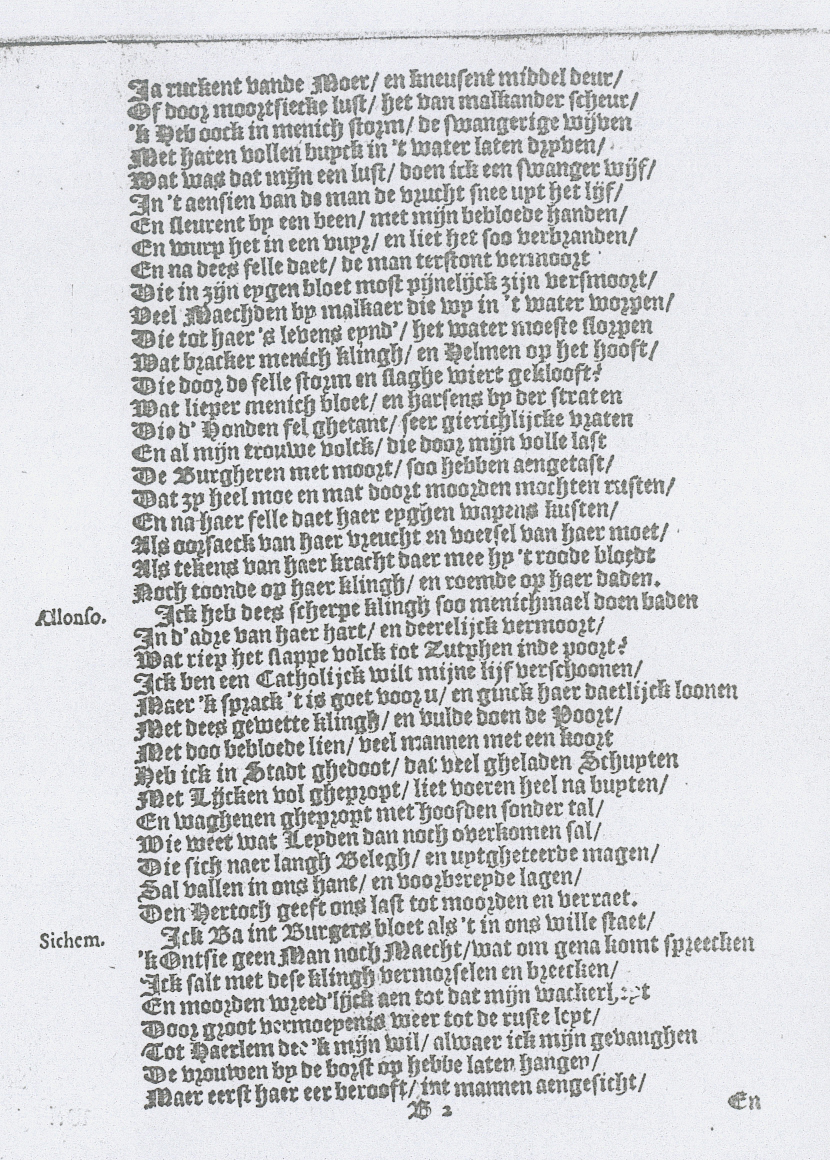 Ja ruckent vande Moer/ en kneusent middel deur/
Of door moortsiecke lust/ het van malkander scheur/
'k Heb oock in menich storm/ de swangerige wijven
Met haren vollen buyck in 't water laten dryven/
Wat was dat mijn een lust/ doen ick een swanger wijf/
In 't aensien van de man de vrucht snee uyt het lijf/
En sleurent by een been/ met mijn bebloede handen/
En wurp het in een vuyr/ en liet het soo verbranden/
En na dees felle daet/ de man terstont vermoort
Die in zijn eygen bloet most pijnelijck zijn versmoort/
Veel Maechden by malkaer die wy in 't water worpen/
Die tot haer 's levens eynd'/ het water moeste slorpen
Wat bracker menich klingh/ en Helmen op het hooft/
Die door de felle storm en slaghe wiert geklooft?
Wat lieper menich bloet/ en harsens by der straten
Die d' Honden fel ghetant/ seer gierichlijcke vraten
En al mijn trouwe volck/ die door mijn volle last
De Burgheren met moort/ soo hebben aengetast/
Dat zy heel moe en mat doort moorden mochten rusten/
En na haer felle daet haer eyghen wapens kusten/
Als oorsaeck van haer vreucht en voetsel van haer moet/
Als tekens van haer kracht daer mee hy 't roode bloedt
Noch toonde op haer klingh/ en roemde op haer daden.
Allonso. Ick heb dees scherpe klingh soo menichmael doen baden
In d'adre van haer hart/ en deerelijck vermoort/
Wat riep het slappe volck tot Zutphen inde poort?
Ick ben een Catholijck wilt mijne lijf verschoonen/
Maer 'k sprack 't is goet voor u/ en ginck haer daetlijck loonen
Met dees gewette klingh/ en vulde doen de Poort/
Met doo bebloede lien/ veel mannen met een koort
Heb ick in Stadt ghedoot/ dat veel gheladen Schuyten
Met Lijcken vol ghepropt/ liet voeren heel na buyten/
En waghenen ghepropt met hoofden sonder tal/
Wie weet wat Leyden dan noch overkomen sal/
Die sich naer langh Belegh/ en uytgheteerde magen/
Sal vallen in ons hant/ en voorbereyde lagen/
Den Hertoch geeft ons last tot moorden en verraet.
Sichem. Ick Ba int Burgers bloet als 't in ons wille staet/
'k Ontsie geen Man noch Maecht/ wat om gena komt spreecken
Ick salt met dese klingh vermorselen en breecken/
En moorden wreed'lijck aen tot dat mijn
Door groot vermoeyenis weer tot de ruste leyt/
Tot Haerlem dee 'k mijn wil/ alwaer ick mijn gevanghen
De vrouwen by de borst op hebbe laten hangen/
Maer eerst haer eer berooft/ int mannen aengesicht/
B 2
En